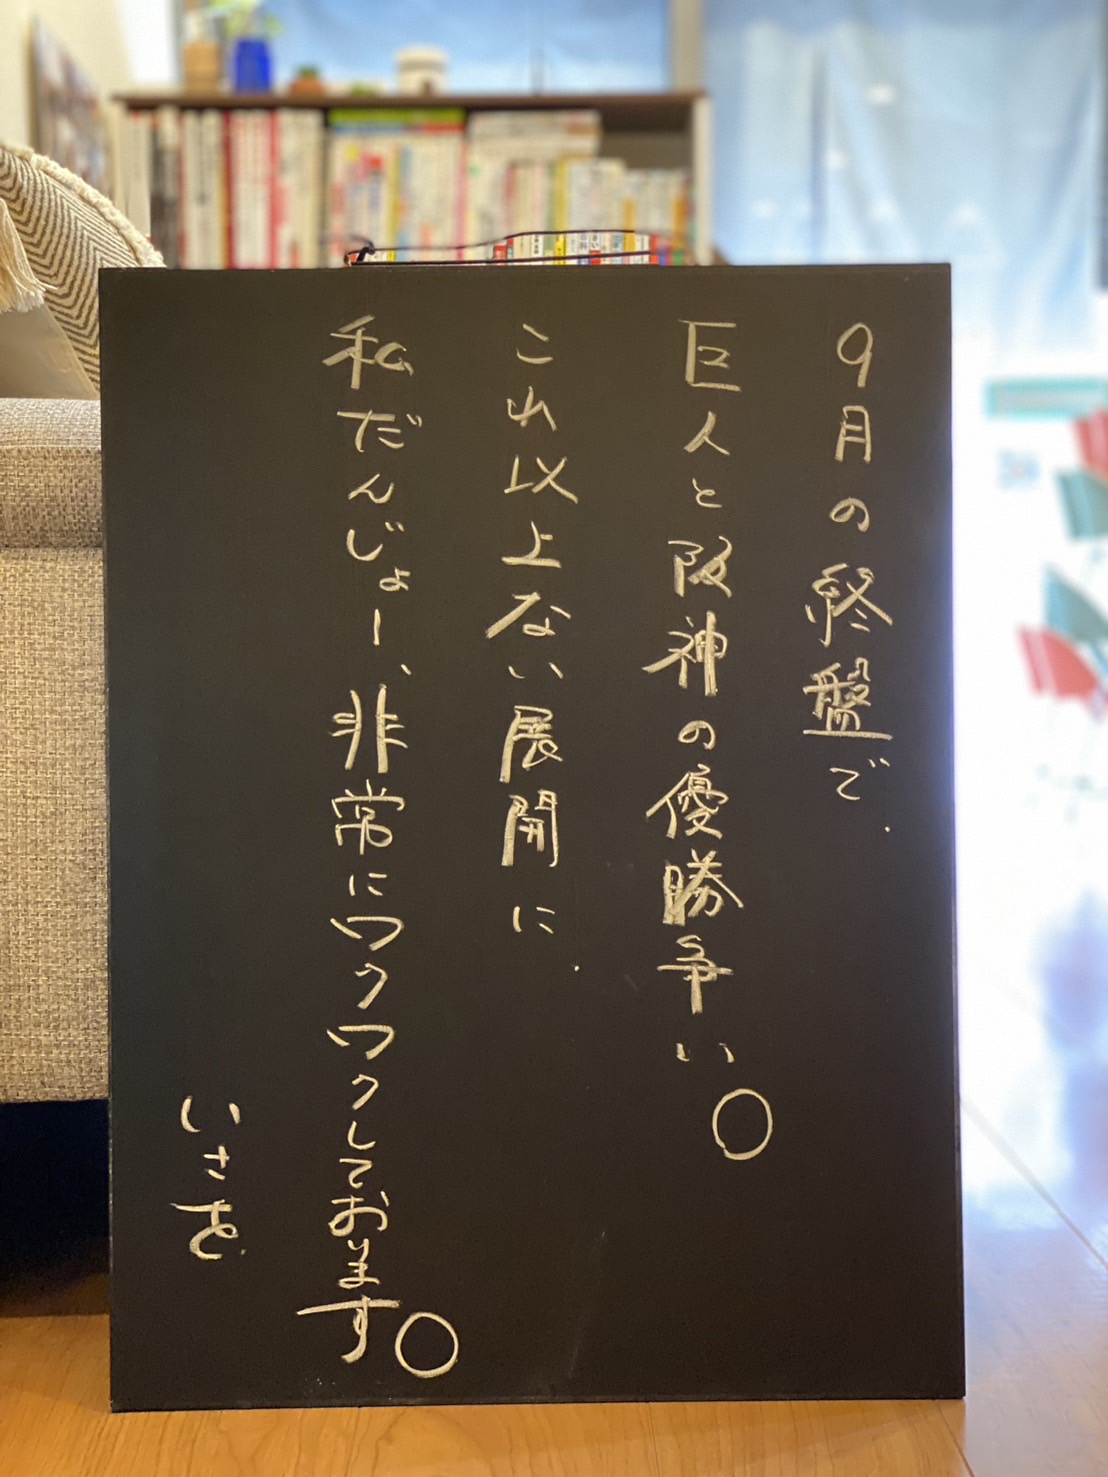 9月の終盤で、
巨人と阪神の優勝争い。
これ以上ない展開に、
私だんじょー、非常にワクワクしております。
いさを